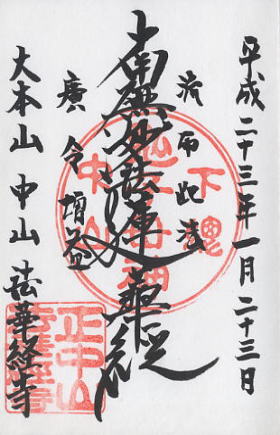 平成二十三年一月二十三日
南無妙法蓮華経
廣令増益
大本山中山法華経寺
下總
中山
正中山